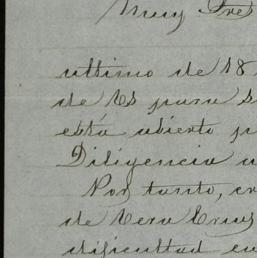 Muy Pre
ultimo de 18
de Es para s
está abierto p
Diligencia u
Por tanto, cr
de Vera Cruz
dificultad en